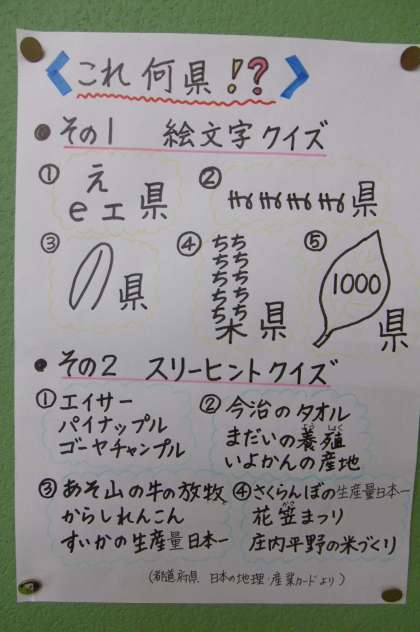 これ何県!?
その1 絵文字クイズ
① え
eエ県
② けけけけ県
③ の県
④ ちち
ちち
ちち
ちち
ちち
木県
⑤ 1000
県
その2 スリーヒントクイズ
① エイサー
パイナップル
ゴーヤチャンプル
② 今治のタオル
まだいの養殖
いよかんの産地
③ あそ山の牛の放牧
からしれんこん
すいかの生産量日本一
④ さくらんぼの生産量日本一
花笠まつり
庄内平野の米づくり
(都道府県 日本の地理・産業カードより)